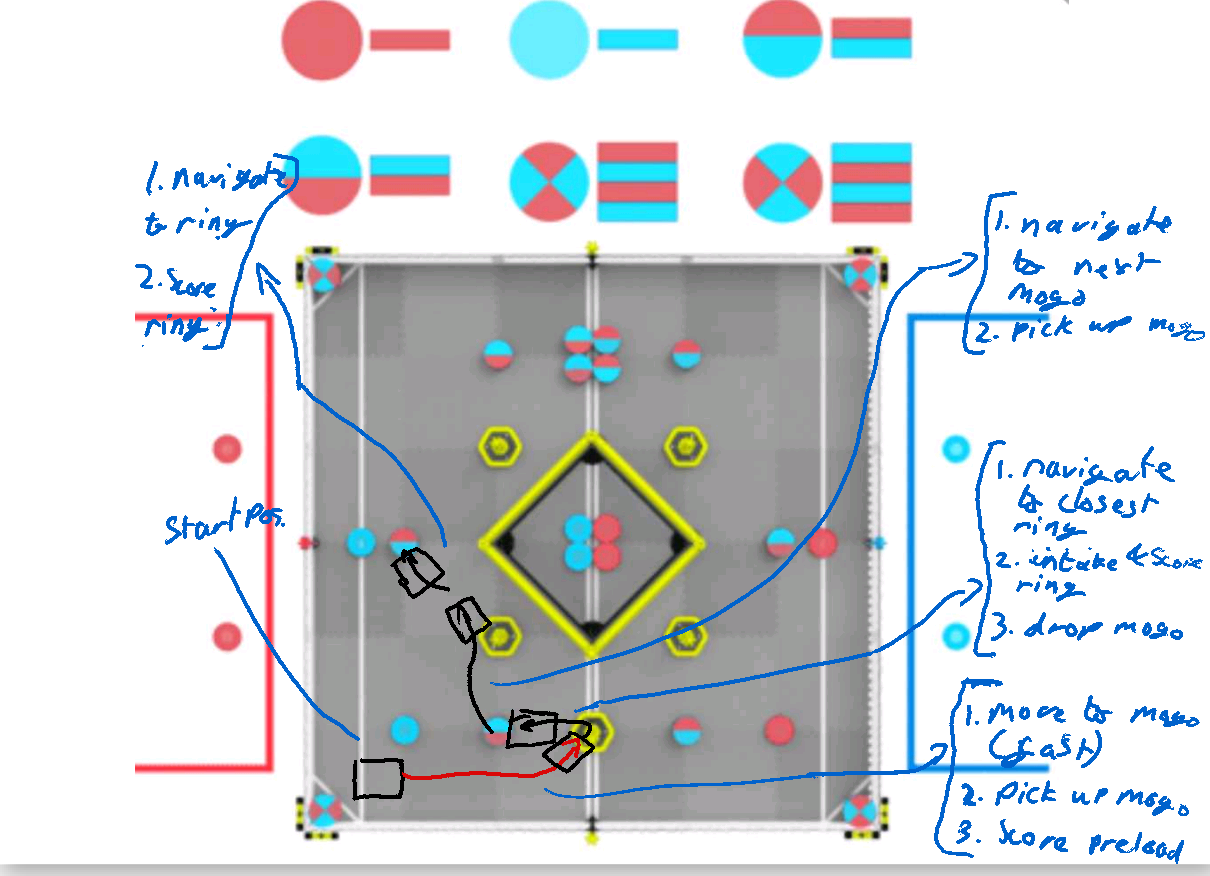 1. navigate
to ring
2. Score
ring
Start Pos.
1. navigate
to next
mogo
2. Pick up mogo
1. navigate
to closest
ring
2. intake & Score
ring
3. drop mogo
1. Move to mogo
(fast)
2. Pick up mogo
3. Score preload